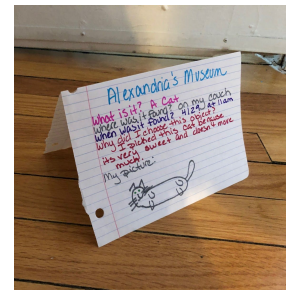 Alexandria's Museum
What is it? A Cat
Where was it found? on my couch
When was it found? 4/29 at 11am
Why did I choose this object?
I picked this cat because
its very sweet and doesn't move
much!
My picture: